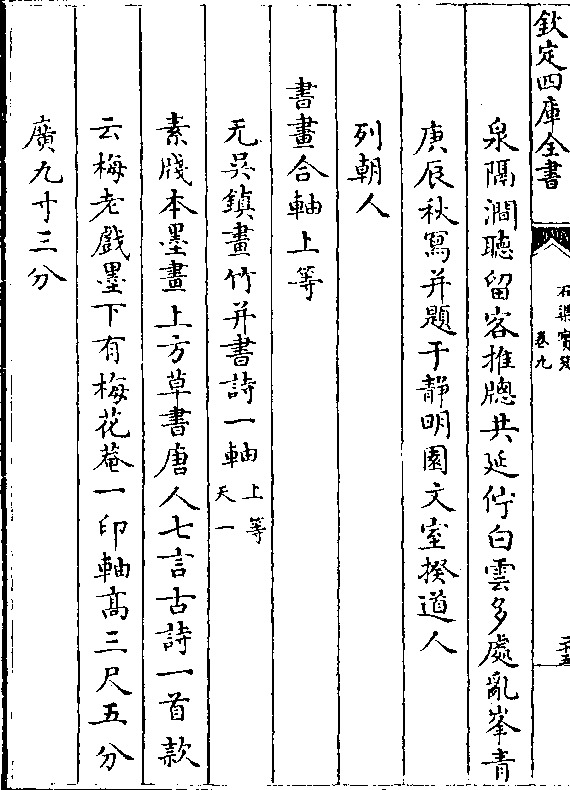 欽定四庫全書
石渠寶笈
卷九
二十五
泉隔澗聽留客推牕共延佇白雲多處亂峯青
庚辰秋寫并題于靜明園文室揆道人
列朝人
書畫合軸上等
元吳鎮畫竹并書詩一軸
上等
天一
素牋本墨畫上方草書唐人七言古詩一首款
云梅老戲墨下有梅花菴一印軸高三尺五分
廣九寸三分